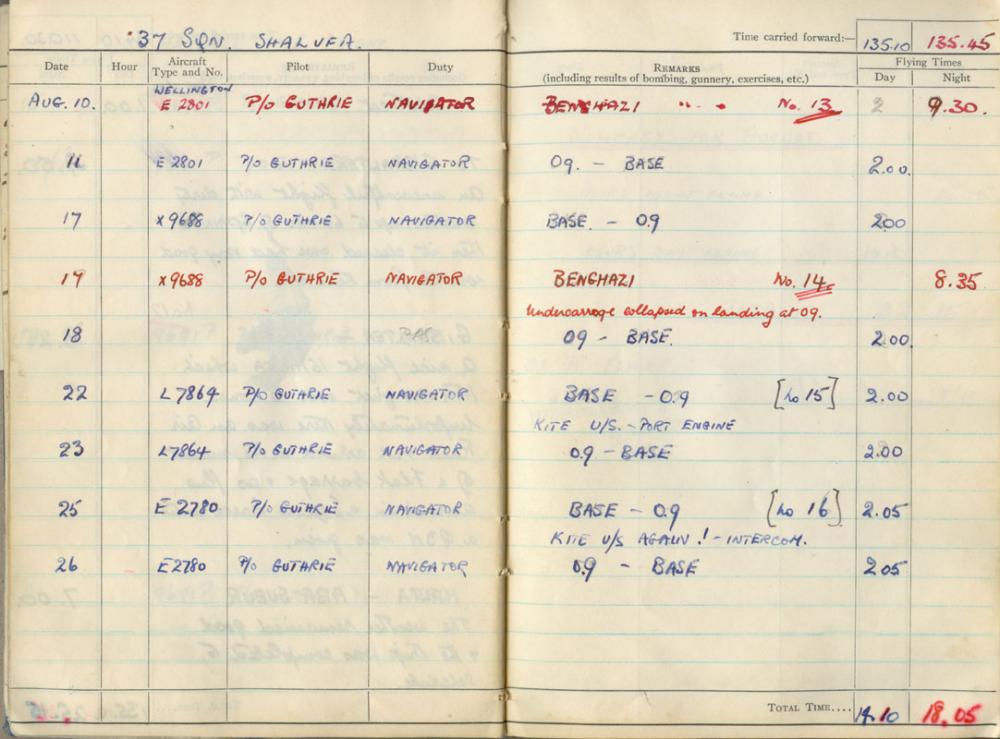 37 SQN. SHALUFA.
Time carried forward:— 135.10 135.45
Date Hour Aircraft Type and No. Pilot Duty REMARKS (including results of bombing, gunnery, exercises, etc.) Flying Times Day Night
WELLINGTON
AUG. 10. E 2801 P/O GUTHRIE NAVIGATOR BENGHAZI No. 13 2 9.30.
11 E 2801 P/O GUTHRIE NAVIGATOR 09. - BASE 2.00.
17 X9688 P/O GUTHRIE NAVIGATOR BASE - 09 200
17 X9688 P/O GUTHRIE NAVIGATOR BENGHAZI No. 14. 8.35
Undercarriage collapsed on landing at 09.
18 09 - BASE. 2.00.
22 L7864 P/O GUTHRIE NAVIGATOR BASE - 09 [No 15] 2.00
KITE U/S. - PORT ENGINE
23 L7864 P/O GUTHRIE NAVIGATOR 09 - BASE 2.00
25 E 2780 P/O GUTHRIE NAVIGATOR BASE - 09 [No 16] 2.05
KITE U/S AGAIN! - INTERCOM.
26 E2780 P/O GUTHRIE NAVIGATOR 09 - BASE 2.05
TOTAL TIME.... 14.10 18.05